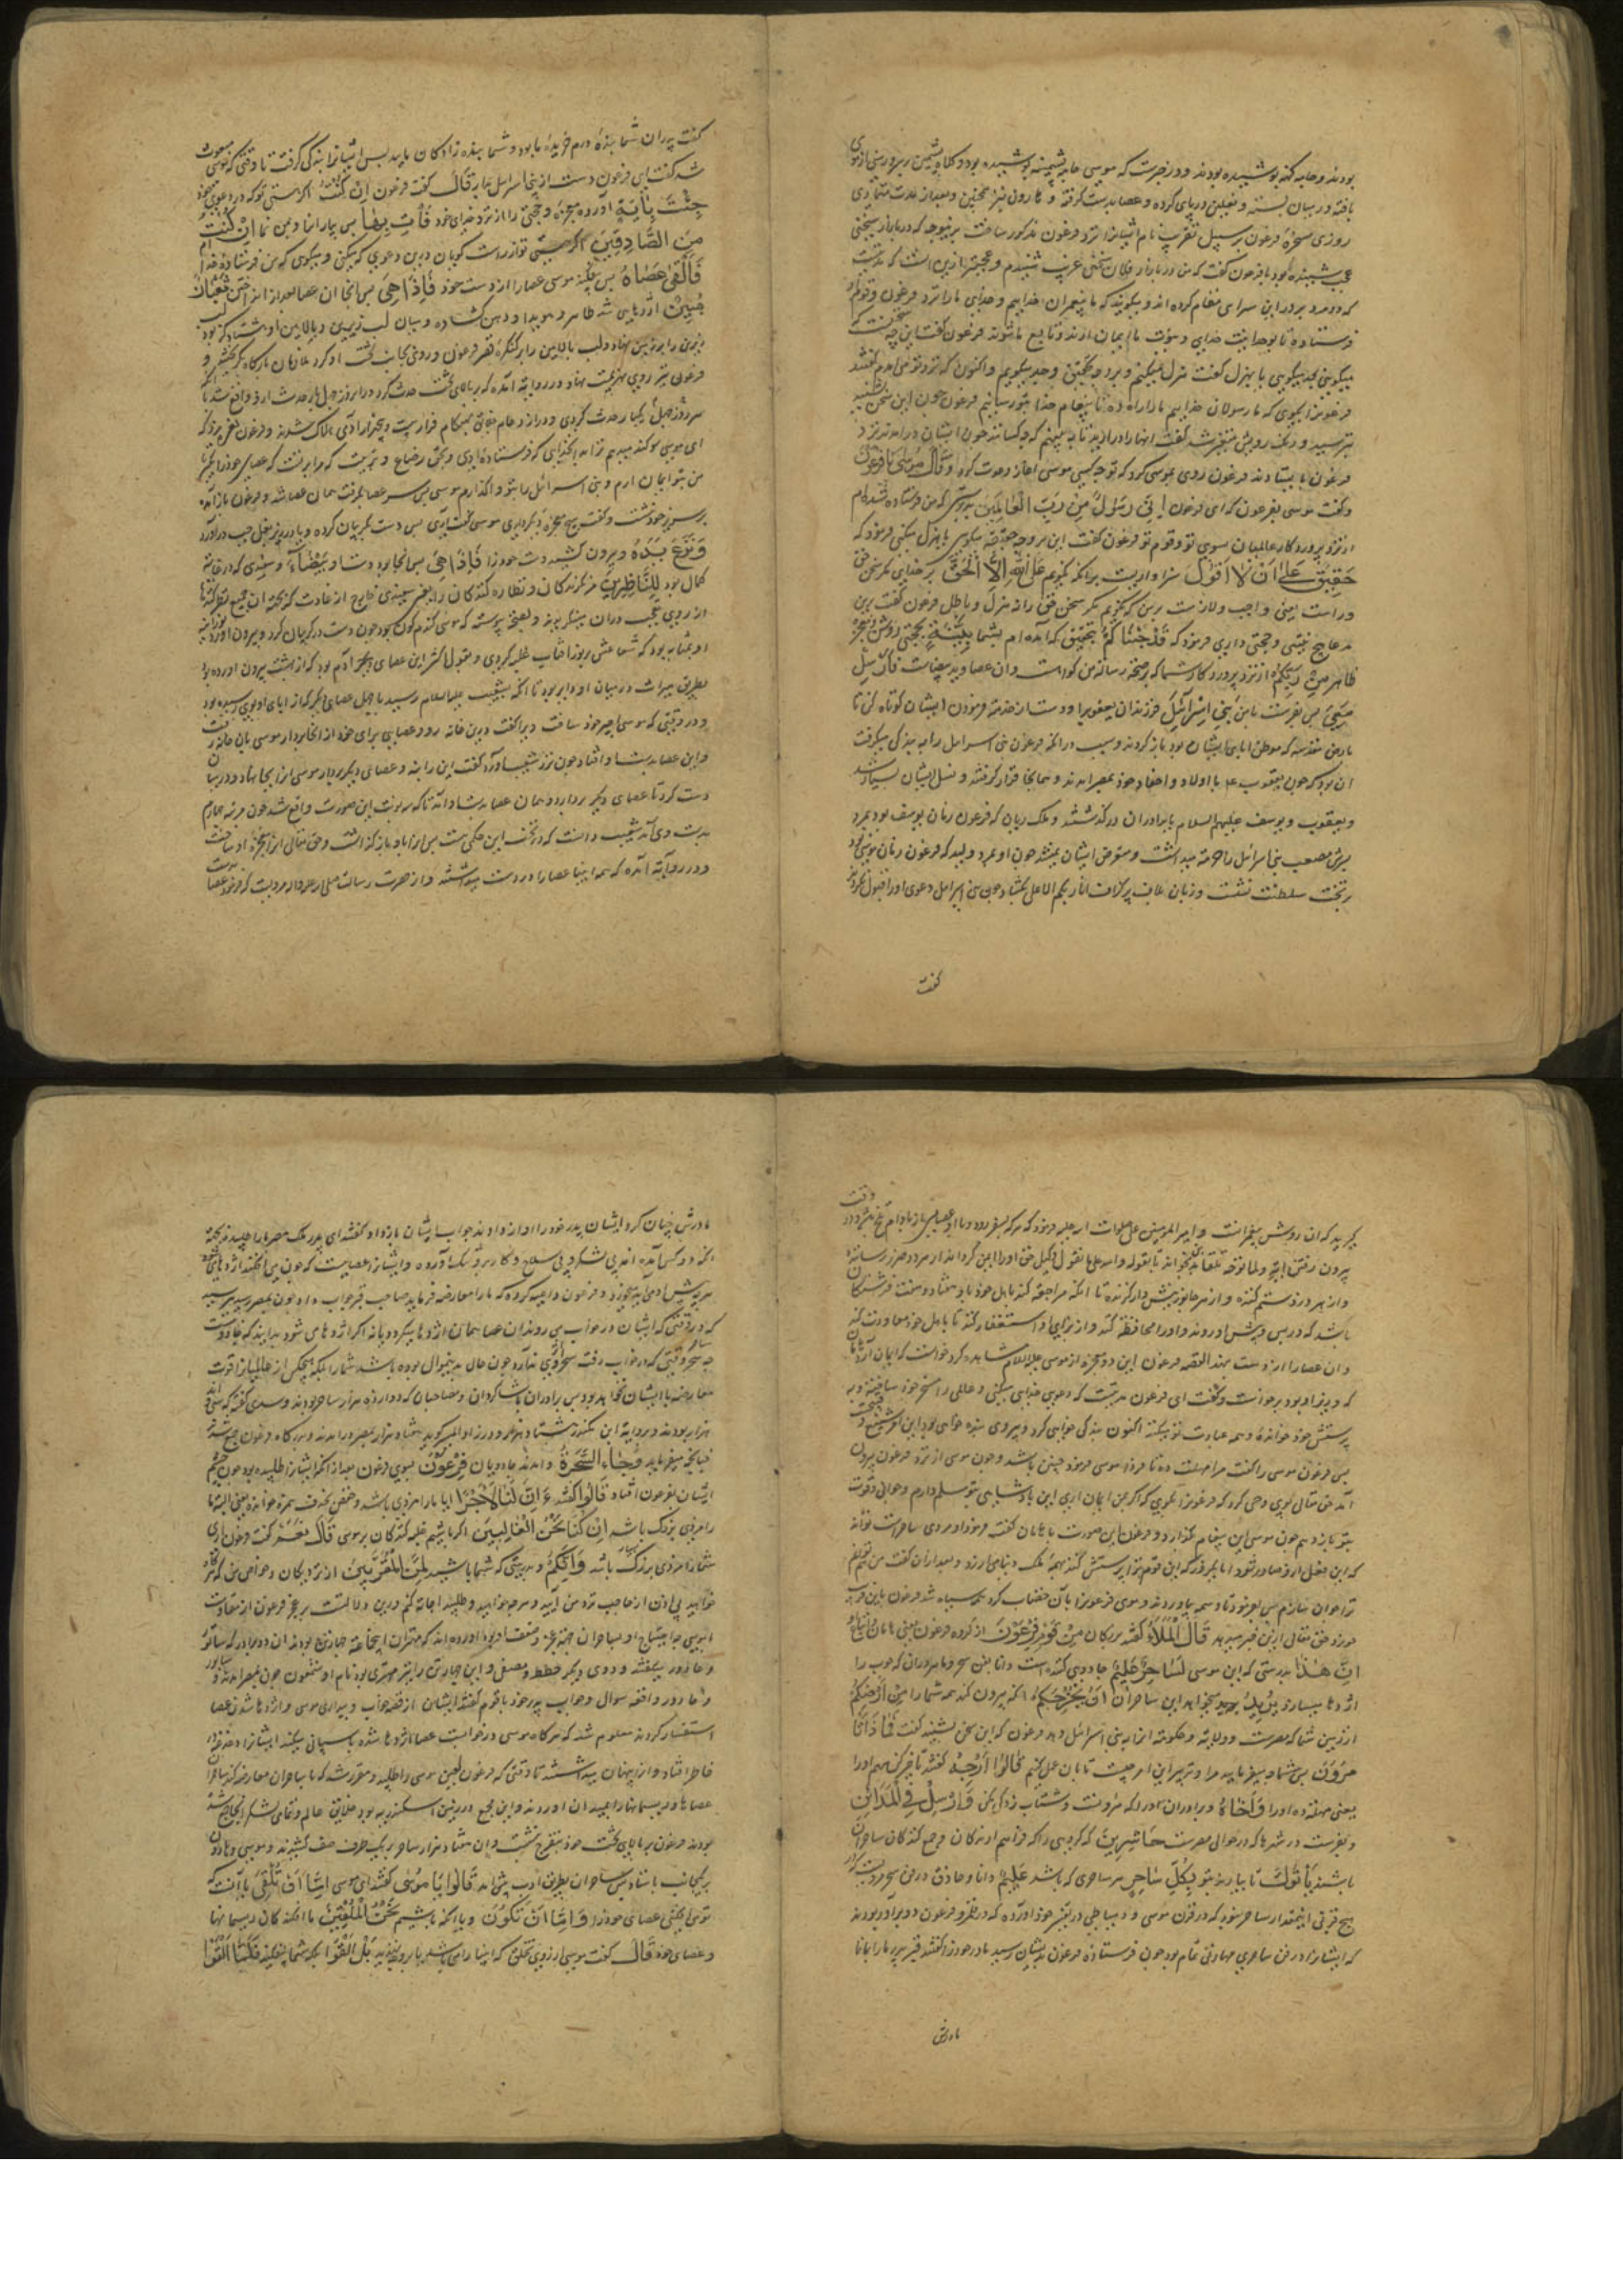 بودند و جامه کهنه پوشیده بودند و در خبرست که موسی جامه پشمینه پوشیده بود و کلاه پشمین بر سر
یافته و در میان بسته و نعلین در پای کرده و عصا بدست گرفته و هارون نیز همچنین و بعد از مدت متمادی
روزی مسخرهٔ فرعون بر سبیل تقریب نام ایشانرا نزد فرعون مذکور ساخت برینوجه که در بازار سخنی
عجب شنیده بود با فرعون گفت که من در بازار فلان سخنی غریب شنیدم و عجبتر ازین است که مدتیست
که دو مرد بر در این سرای مقام کرده اند و میگویند که ما پیغمبران خداییم و خدای ما را نزد فرعون و قوم او
فرستاده تا بوحدانیت خدای و نبوت ما ایمان آرند و تابع ما شوند فرعون گفت این چه سخنست که
میگویی بجد میگویی یا بهزل گفت هزل نمیکنم و بجد میگویم و اکنون که نزد تو می امدم گفتند
فرعونرا بگوی که ما رسولان خداییم ما را راه ده تا پیغام خدا بتو رسانیم فرعون چون این سخن شنید
بترسید و رنک رویش متغیر شد گفت انها را درآرید تا به بینم که چه کسانند چون ایشان درامدند نزد
فرعون بایستادند فرعون روی بموسی کرد که تو چه کسی موسی اغاز دعوت کرد وَقَالَ مُوسٰی یَا فِرْعَوْنُ
و گفت موسی بفرعون که ای فرعون اِنِّی رَسُولٌ مِنْ رَبِّ الْعَالَمِینَ بدرستی که من فرستاده شده ام
از نزد پروردکار عالمیان بسوی تو و قوم تو فرعون گفت این بر وجه حقیقة میگویی یا هزل میکنی فرمود که
حَقِیقٌ عَلٰی اَنْ لَا اَقُولَ سزاوارست بر انکه نگویم عَلَی اللّٰهِ اِلَّا الْحَقَّ بر خدای مکر سخن حق
و راست یعنی واجب و لازمست برمن که نگویم مکر سخن حق را نه هزل و باطل فرعون گفت برین
مدعا هیچ بینتی و حجتی داری فرمود که قَدْ جِئْتُکُمْ بتحقیق که آمده ام بشما بِبَیِّنَةٍ بحجتی روشن و معجزهٔ
ظاهر مِنْ رَبِّکُمْ از نزد پروردکار شما که بر صحت رسالت من گواهست و ان عصا و ید بیضاست فَاَرْسِلْ
مَعِیَ پس بفرست با من بَنِی اِسْرَائِیلَ فرزندان یعقوب را و دست از خدمت فرمودن ایشان کوتاه کن تا
بارض مقدسه که موطن ابای ایشان بود باز گردند و سبب در انکه فرعون بنی اسرائیل را به بندکی میگرفت
ان بود که چون یعقوب ع با اولاد و احفاد خود بمصر امدند و همانجا قرار گرفتند و نسل ایشان بسیار شد
و یعقوب و یوسف علیهم السلام با برادران درگذشتند و ملک ریان که فرعون زمان یوسف بود بمرد
پسرش مصعب بنی اسرائیل را حرمت میداشت و متعرض ایشان نمیشد چون او بمرد ولید که فرعون زمان موسی بود
بر تخت سلطنت نشست و زبان بلاف پر گزاف انا ربکم الاعلی بگشاد چون بنی اسرائیل دعوی او را قبول نکردند
گفت
گفت پدران شما بندهٔ درم خریدهٔ ما بود و شما بنده زادکان مایید پس ایشانرا ببندکی گرفت تا وقتی که موسی مبعوث
شد گفت ای فرعون دست از بنی اسرائیل بدار قَالَ گفت فرعون اِنْ کُنْتَ اکر هستی تو که در دعوی خود
جِئْتَ بِاٰیَةٍ آورده معجزه و حجتی را از نزد خدای خود فَأْتِ بِهَا پس بیار انرا و بمن نما اِنْ کُنْتَ
مِنَ الصَّادِقِینَ اکر هستی تو از راست گویان درین دعوی که میکنی و میگوی که من فرستادهٔ خدا ام
فَاَلْقٰی عَصَاهُ پس بیفکند موسی عصا را از دست خود فَاِذَا هِیَ پس انجا ان عصا بعد از انداختن ثُعْبَانٌ
مُبِینٌ اژدهایی شد ظاهر و هویدا و دهن گشاده و میان لب زیرین و بالایین او هشتاد گز بود لب
زیرین را بر زمین نهاد و لب بالایین را بر کنگرهٔ قصر فرعون و روی بجانب تخت او کرد ملازمان بارگاه بگریختند و
فرعون نیز روی بهزیمت نهاد و در روایت آمده که بر بالای تخت حدث کرد و در انروز چهل بار حدث از او واقع شد با انکه
هر روز چهل یکبار حدث کردی و در ازدحام هنکام فرار بیست و پنجهزار آدمی هلاک شدند و فرعون نعره میزد که
ای موسی سوگند میدهم ترا به انخدایی که فرستاده ایزدی و بحق رضاع و تربیت که مرا بر تست که عصای خود را بگیر تا
من بتو ایمان ارم و بنی اسرائیل را بتو واگذارم موسی پس سر عصا بگرفت همان عصا شد و فرعون بازآمد
بر سریر خود نشست و گفت هیچ معجزهٔ دیگر داری موسی گفت آری پس دست بگریبان کرده و یا در زیر بغل چپ درآورد
وَنَزَعَ یَدَهُ و بیرون کشید دست خود را فَاِذَا هِیَ پس انجا بود دست او بَیْضَآءُ و سفیدی که در غایت
کمال بود لِلنَّاظِرِینَ مر نگرندکان و نظاره کنندکان را یعنی سفیدی خارج از عادت که بجهت ان جمیع نظر کنندکان
از روی تعجب دران مینگریدند و بصحت پیوسته که موسی گندم گون بود چون دست در گریبان کرد و بیرون اورد نورانیت
او بمثابه بود که شعاعش بر نور افتاب غلبه کردی و بقول اکثر این عصای حضرت ادم بود که از بهشت بیرون اورده بود
بطریق میراث در میان او دایر بود تا انکه بشعیب علیه السلام رسید با چهل عصای دیگر که از ابای او بوی رسیده بود
و در وقتی که موسی اجیر خود ساخت ویرا گفت درین خانه رو و عصایی برای خود از انجا بردار موسی بان خانه رفت
و این عصا بدستش افتاد چون نزد شعیب اورد گفت این را بنه و عصای دیگر بردار موسی انرا بجا نهاد و در میان
دست کرد تا عصای دیگر بردارد همان عصا بدستش درآمد تا سه نوبت این صورت واقع شد چون مرتبه چهارم
بدست وی آمد شعیب دانست که در تحت این حکمی هست پس انرا با و باز گذاشت و حق تعالی انرا معجزهٔ او ساخت
و در روایة آمده که همه انبیا عصا را در دست میداشتند و از حضرت رسالت صلی الله علیه و اله مرویست که فرمود عصا بدست
بگیرید که ان روش پیغمبرانست و امیر المومنین علیه صلوات الله علیه فرمود که هر که بسفر رود و با او عصایی از بادام تلخ بود و در وقت
بیرون رفتن ایه و لما توجه تلقاء مدین بخواند تا بقوله و الله علی ما نقول وکیل حق او را ایمن گرداند از هر درندهٔ ضرر رساننده
و از هر دزد ستم کننده و از هر جانور نیش دار گزنده تا انکه مراجعه کند باهل خود با و هفتاد و هفت فرشتکان
باشد که در پس و پیش او روند و او را محافظه کنند و از برای او استغفار کنند تا باهل خود معاودت کند
و ان عصا را از دست بنهد القصه فرعون این دو معجزه از موسی علیه السلام مشاهده کرد خواست که ایمان آرد هامان
که وزیر او بود برخواست و گفت ای فرعون مدتیست که دعوی خدایی میکنی و عالمی را مسخر خود ساخته و به
پرستش خود خوانده و همه عبادت تو میکنند اکنون بندگی خواهی کرد و پیروی بنده خواهی بود این امر شنیع و قبیحست
پس فرعون موسی را گفت مرا مهلت ده تا فردا موسی فرمود چنین باشد و چون موسی از نزد فرعون بیرون
آمد حق تعالی بوی وحی کرد که فرعونرا بگوی که اگر بمن ایمان اری این پادشاهی بتو مسلم دارم و جوانی و قوت
بتو باز دهم چون موسی این پیغام گذارد و فرعون این صورت با هامان گفت فرمود او مردی ساحر است نتواند
که این فعل ازو صادر شود اما یکروز که این قوم ترا پرستش کنند بهمهٔ ملک دنیا می ارزد و بعد ازان گفت من نیز
ترا جوان سازم پس بفرمود تا وسمه بیاوردند و موی فرعونرا بآن خضاب کرد همه سیاه شد فرعون باین فریب
خورد حق تعالی ازین خبر میدهد قَالَ الْمَلَأُ گفتند بزرکان مِنْ قَوْمِ فِرْعَوْنَ از گروه فرعون یعنی هامان و اتباع او
اِنَّ هٰذَا بدرستی که این موسی لَسَاحِرٌ عَلِیمٌ جادویی کننده است دانا بفن سحر و ماهر دران که چوب را
اژدها میسازد یُرِیدُ میخواهد این ساحر ان اَنْ یُخْرِجَکُمْ انکه بیرون کند همه شما را مِنْ اَرْضِکُمْ
از زمین شما که مصرست و ولایة و حکومة انرا به بنی اسرائیل دهد فرعون که این سخن بشنید گفت فَمَاذَا تَأْ
مُرُونَ پس شما چه میفرمایید مرا و تدبیر این امر چیست تا بان عمل کنم قَالُوا اَرْجِهْ گفتند تاخیر کن مهم او را
یعنی مهلتش ده او را وَاَخَاهُ و برادر او را که هارونست و شتاب زدگی مکن وَاَرْسِلْ فِی الْمَدَائِنِ
و بفرست در شهرها که در حوالی مصرست حَاشِرِینَ که گروهی را که فراهم اورندکان و جمع کنندکان ساحران
باشند یَأْتُوکَ تا بیارند بتو بِکُلِّ سَاحِرٍ هر ساحری که باشد عَلِیمٍ دانا و حاذق در فن سحر
هیچ قرنی اینمقدار ساحر نبود که در قرن موسی و در نظر فرعون دو برادر بودند
که ایشانرا در فن ساحری مهارتی تمام بود چون فرستادهٔ فرعون بدیشان رسید مادر خود را گفتند قبر پدر ما را بما نما
مادرش
مادرش چنان کرد ایشان پدر خود را اواز دادند جواب ایشان باز داد گفتند ای پدر ملک مصر ما را طلبیده بجهت
انکه دو کس آمده اند بی لشکر و بی سلاح و کار بر وی تنک آورده و ایشانرا عصاییست که چون می افکنند اژدها میشود
هر چه پیش اید میخورد و فرعون داعیه کرده که ما را معارضه فرماید صاحب قبر جواب داد چون بمصر رسید بپرسید
که در وقتی که ایشان در خواب می روند ان عصا همان اژدها میگردد یا نه اگر اژدها می شود بدانید که جادو نیست
چه سحر وقتی که در خواب رفت سحر او اثری ندارد چون حال بدینمنوال بوده باشد شما را بلکه هیچکس از عالمیان را قوت
معارضه با ایشان نخواهد بود پس برادران با شاگردان و مصاحبان که دوازده هزار ساحر بودند و سدی گفته که سی و اند
هزار بودند و بروایة ابن منکدر هشتاد هزار و در زاد المسیر گوید هفتاد هزار بمصر درامدند و بدرکاه فرعون جمع شدند
چنانچه میفرماید وَجَاءَ السَّحَرَةُ و امدند جادویان فِرْعَوْنَ بسوی فرعون بعد از انکه ایشانرا طلبیده بود چون چشم
ایشان بفرعون افتاد قَالُوا گفتند ءَاِنَّ لَنَا لَاَجْرًا ایا ما را مزدی باشد و حفص بحذف همزه خوانده یعنی البته ما
را مزدی بزرک باشد اِنْ کُنَّا نَحْنُ الْغَالِبِینَ اکر باشیم غلبه کنندکان بر موسی قَالَ نَعَمْ گفت فرعون آری
شما را مزدی بزرک باشد وَاِنَّکُمْ و بدرستی که شما باشید لَمِنَ الْمُقَرَّبِینَ از نزدیکان و خواص من که هرگاه
خواهید بی اذن از حاجب نزد من آیید و هر چه خواهید و طلبید اجابت کنم و درین دلالتست بر عجز فرعون از مقاومت
با موسی و احتیاج او بساحران بجهت عجز و ضعف او بود اورده اند که مهتران انجماعة جهار تن بودند ان دو برادر که سابور
و عادور میگفتند و دوی دیگر حطحط و مصفی و این چهار تن را نیز مهتری بود نام او شمعون چون بمصر امدند سابور
و عادور واقعه سوال و جواب پدر خود با قوم گفتند ایشان از قصه خواب و بیداری موسی و اژدها شدن عصا
استفسار کردند معلوم شد که هر گاه موسی در خوابست عصا اژدها شده پاسبانی میکند ایشانرا دغدغه در
خاطر افتاد و از پنهان میداشتند تا وقتی که فرعون لعین موسی را طلبید و مقرر شد که با ساحران معارضه کند ساحران
عصاها و ریسمانها را بمیدان اوردند و این مجمع در زمین اسکندریه بود خلایق عالم و تمامی لشکر انجا جمع شده
بودند فرعون بر بالای تخت خود بتفرج نشست و ان هفتاد هزار ساحر بر یکطرف صف کشیدند و موسی و هارون
بر یکجانب بایستادند پس ساحران بطریق ادب پیش امدند قَالُوا یَا مُوسٰی گفتند ای موسی اِمَّا اَنْ تُلْقِیَ یا آنست که
تو می افکنی عصای خود را وَاِمَّا اَنْ نَکُونَ و یا انکه باشیم نَحْنُ الْمُلْقِینَ ما افکنندکان ریسمانها
و عصای خود قَالَ گفت موسی از روی تخلق که اینها را می باشد بَلْ اَلْقُوا بلکه شما بیفکنید فَلَمَّا اَلْقَوْا